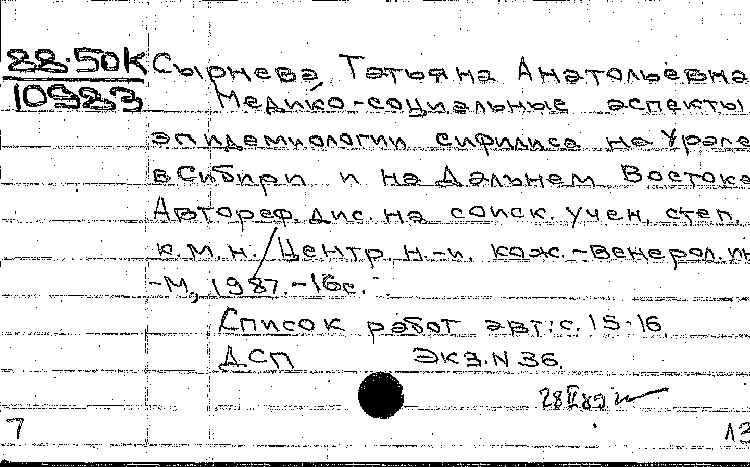 22.50К Сырнева, Татьяна Анатольевна
10983 Медико-социальные аспекты
эпидемиологии сифилиса на Урале
в Сибири и на Дальнем Востоке
Автореф. дис. на соиск. учен. степ.
к.м.н. / Центр. н.-и. кож.-венерол. ин
-М., 1987.-16с.
Список работ авт.: с. 15-16.
ДСП Экз. N 36.
7